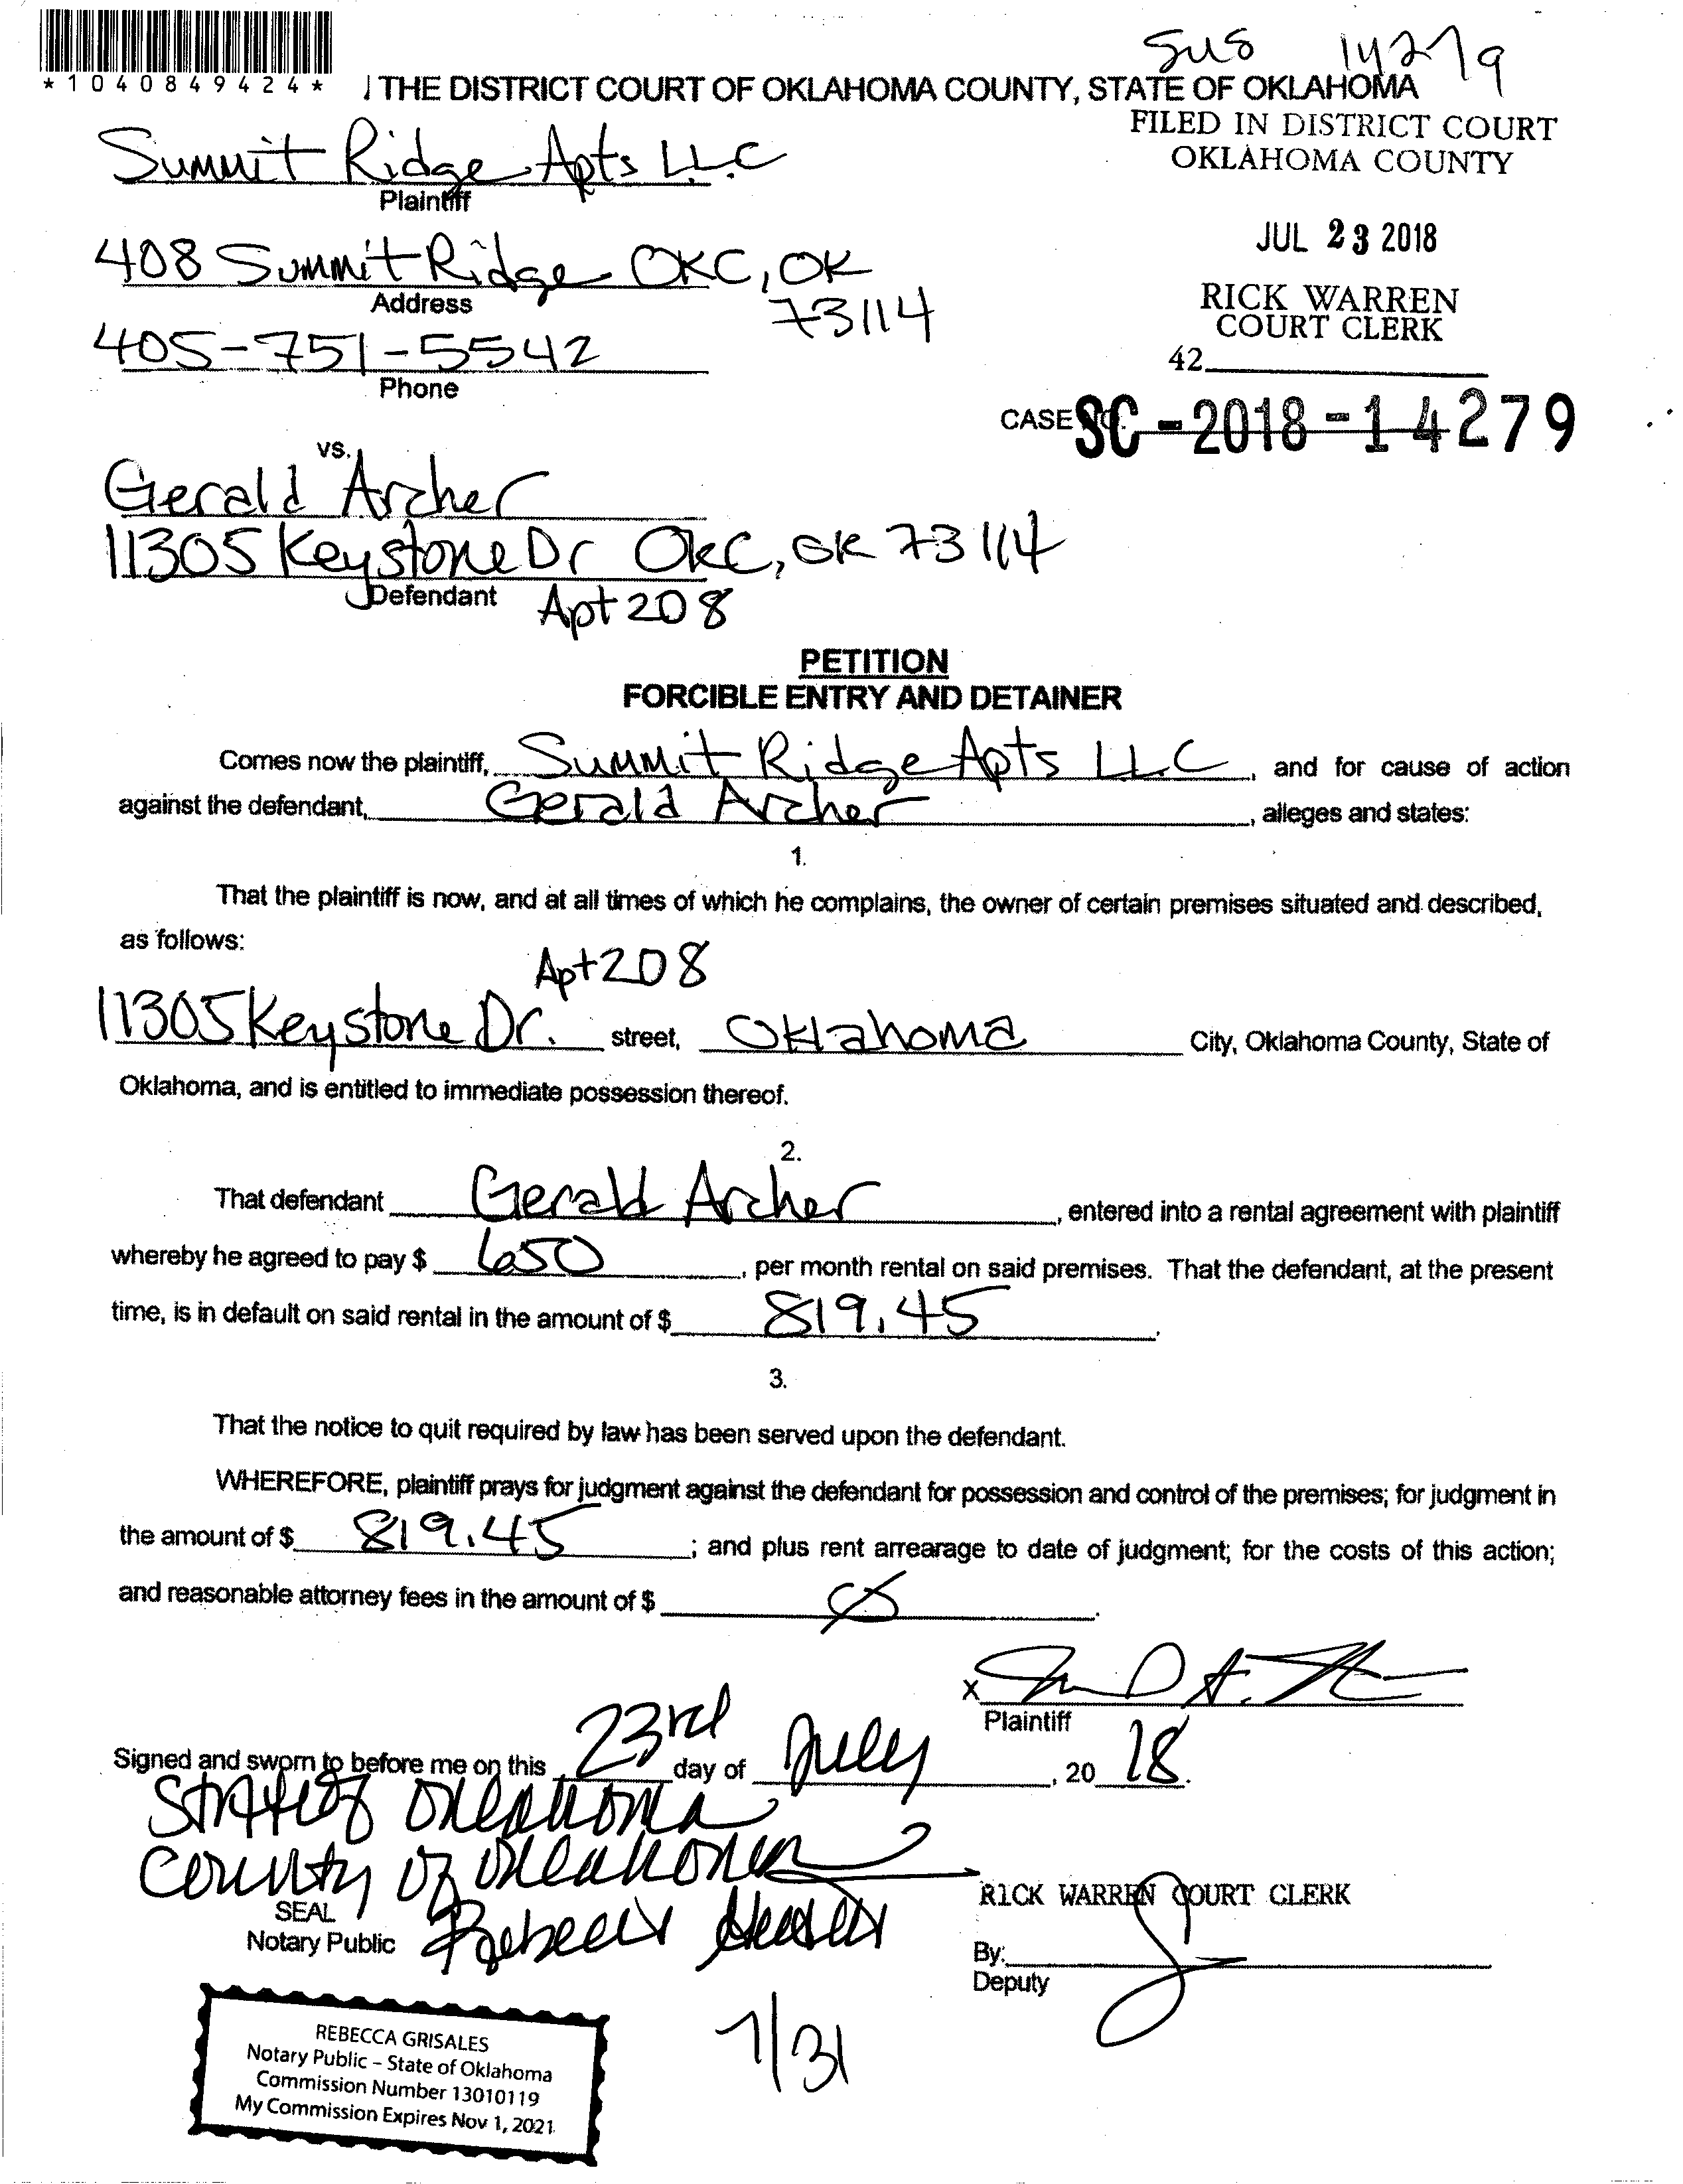 SUS 14279
*1040849424*
THE DISTRICT COURT OF OKLAHOMA COUNTY, STATE OF OKLAHOMA
FILED IN DISTRICT COURT
OKLAHOMA COUNTY
Summit Ridge Apts LLC
Plaintiff
JUL 23 2018
408 Summit Ridge OKC, OK
73114
Address
RICK WARREN
COURT CLERK
405-751-5542
Phone
42
CASE NO. SC-2018-14279
vs.
Gerald Archer
11305 Keystone Dr OKC, OK 73114
Defendant Apt 208
PETITION
FORCIBLE ENTRY AND DETAINER
Comes now the plaintiff, Summit Ridge Apts LLC, and for cause of action
against the defendant, Gerald Archer, alleges and states:
1.
That the plaintiff is now, and at all times of which he complains, the owner of certain premises situated and described,
as follows:
Apt 208
11305 Keystone Dr. street, Oklahoma City, Oklahoma County, State of
Oklahoma, and is entitled to immediate possession thereof.
2.
That defendant Gerald Archer, entered into a rental agreement with plaintiff
whereby he agreed to pay $ 650, per month rental on said premises. That the defendant, at the present
time, is in default on said rental in the amount of $ 819.45.
3.
That the notice to quit required by law has been served upon the defendant.
WHEREFORE, plaintiff prays for judgment against the defendant for possession and control of the premises; for judgment in
the amount of $ 819.45; and plus rent arrearage to date of judgment; for the costs of this action;
and reasonable attorney fees in the amount of $ Ø.
X
Plaintiff
Signed and sworn to before me on this 23rd day of July, 20 18.
State of Oklahoma
County of Oklahoma
RICK WARREN COURT CLERK
SEAL
Notary Public Rebecca
By:
Deputy
REBECCA GRISALES
Notary Public – State of Oklahoma
Commission Number 13010119
My Commission Expires Nov 1, 2021
7/31